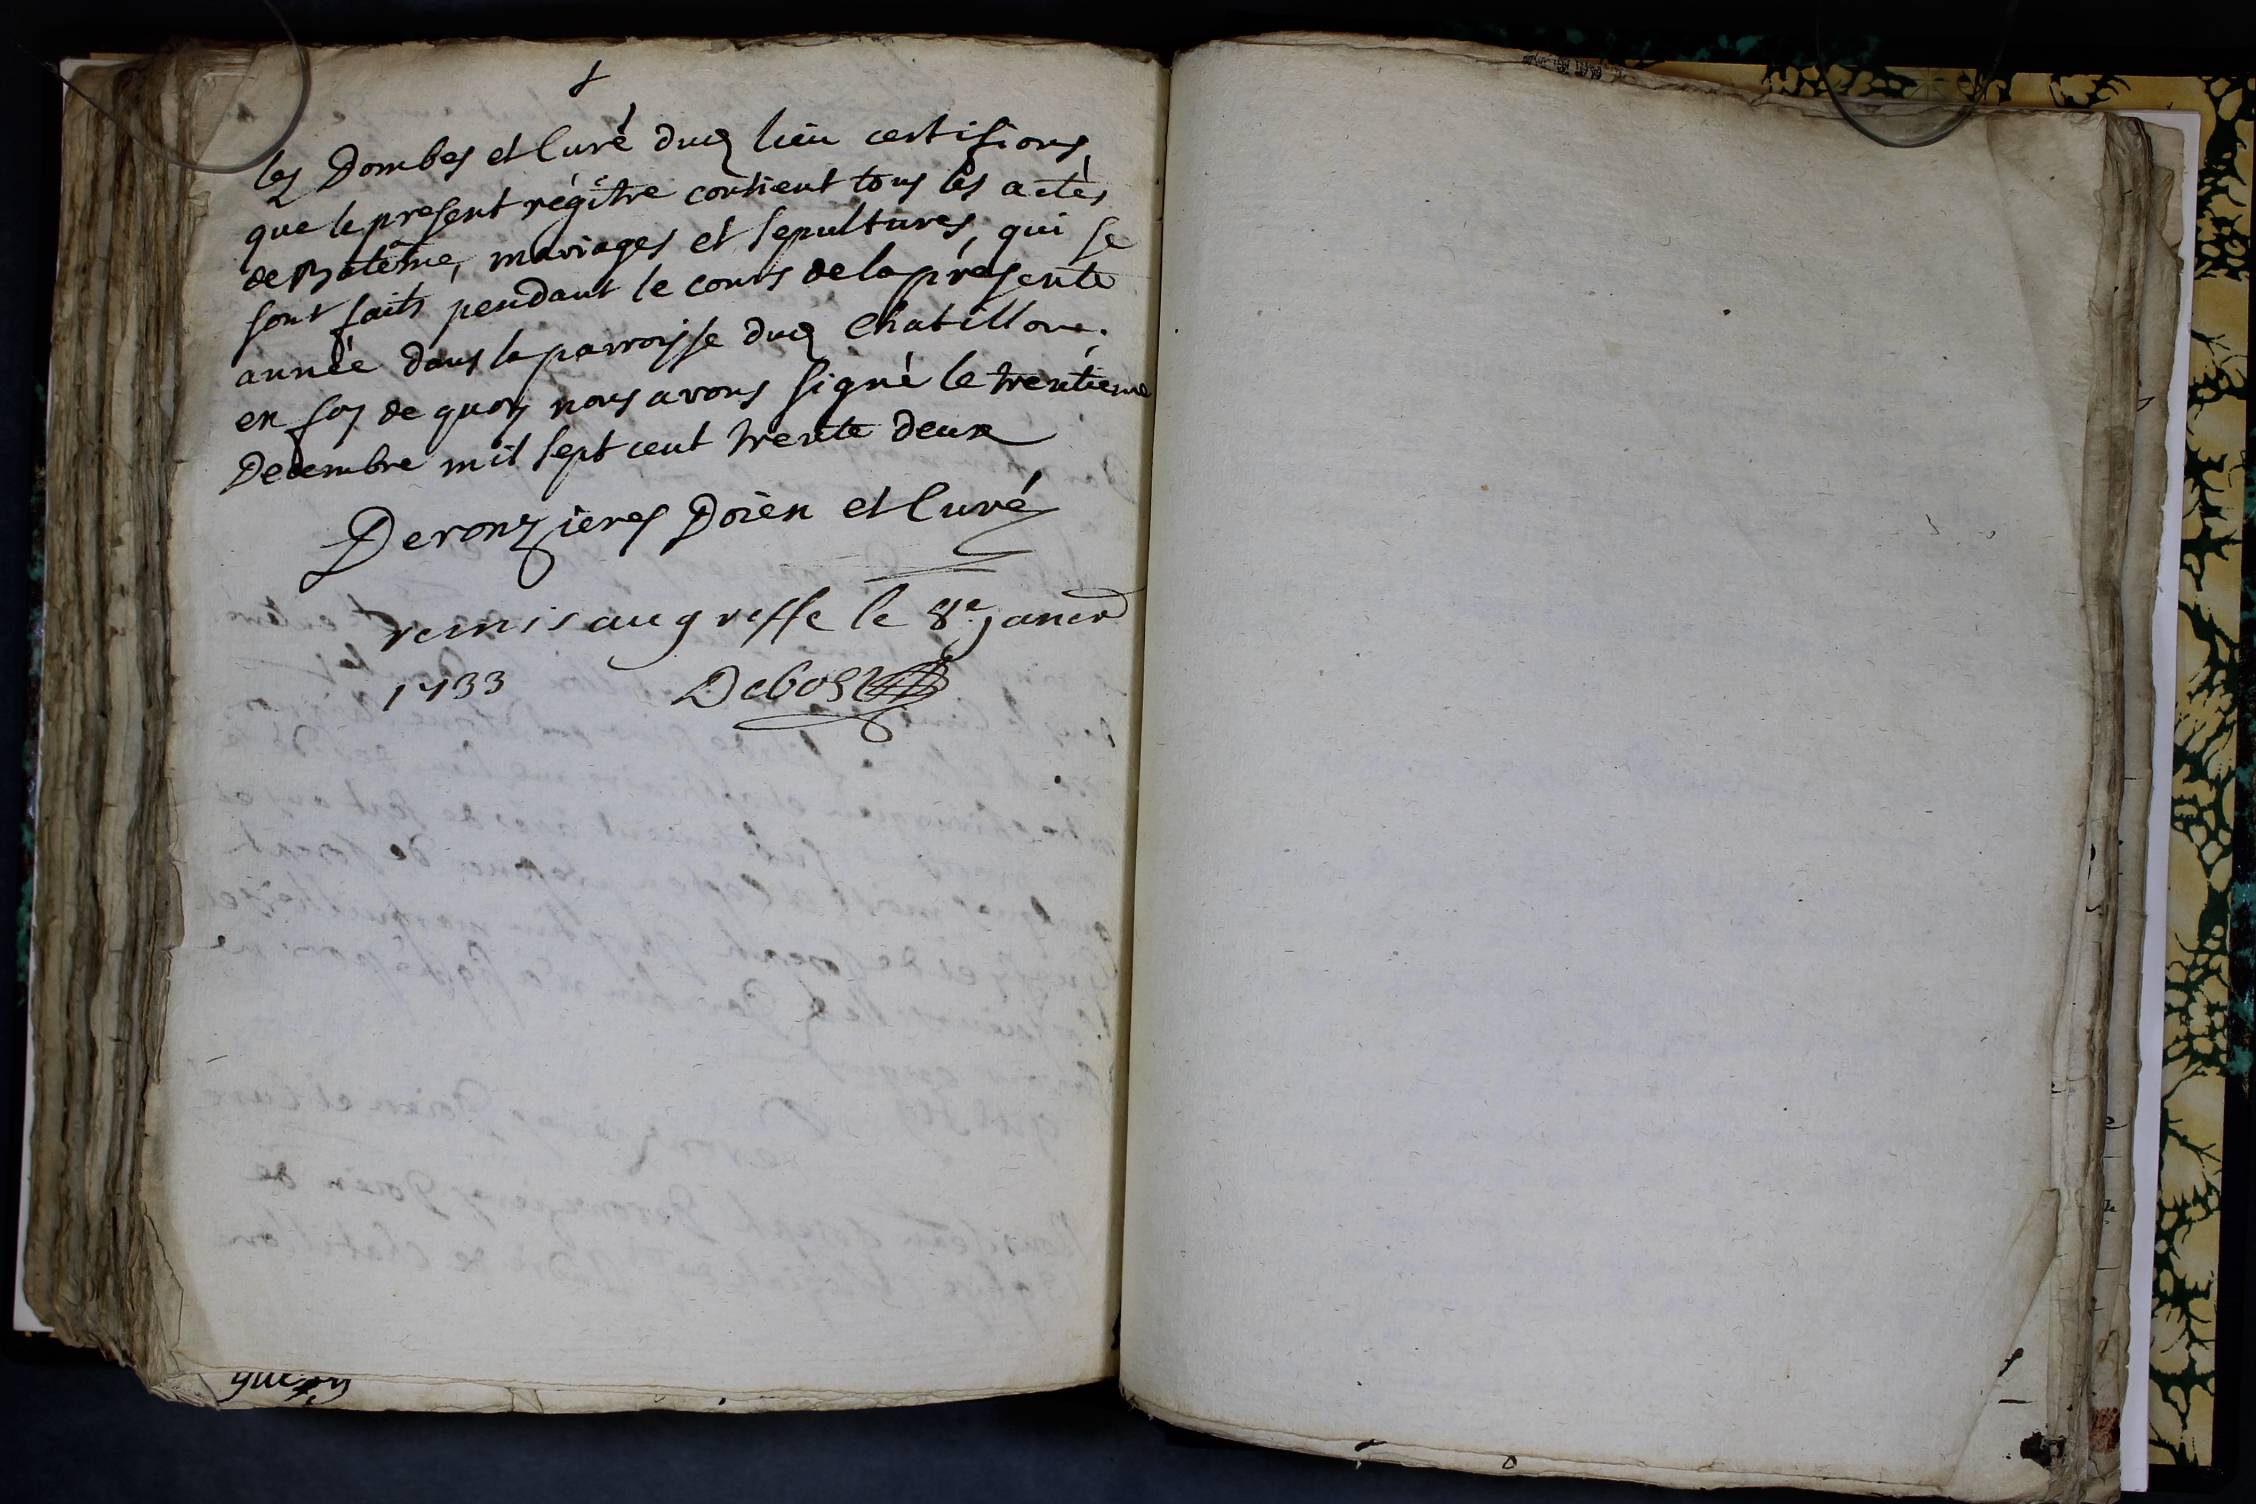 les Dombes et Curé dud lieu certifions
que le present régitre contient tous les actes
de Batême, mariages et sepultures, qui se
sont faits pendant le cours de la présente
année dans la parroisse dud Chatillon.
en foy de quoy nous avons signé le trentieme
Decembre mil sept cent trente deux
Deronzieres Doïen et Curé
remis au greffe le 8e janer
1733 Debost